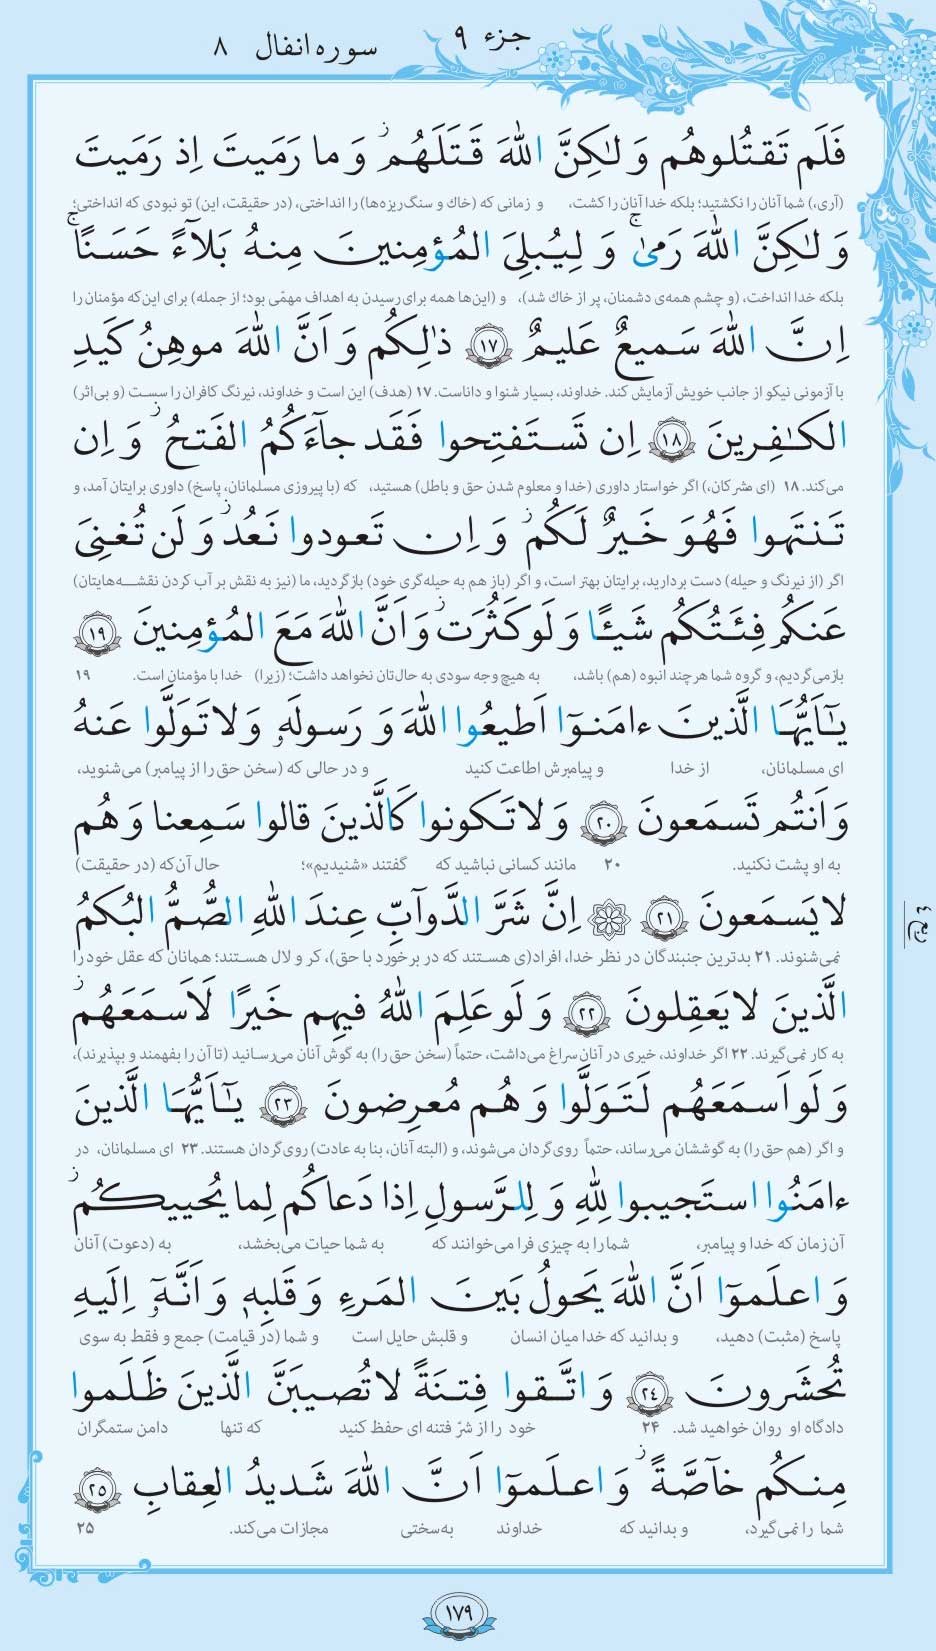 جزء ۹
سوره انفال ۸
فَلَم تَقتُلوهُم وَ لٰكِنَّ اللهَ قَتَلَهُم ۚ وَ ما رَمَيتَ اِذ رَمَيتَ
(آری،) شما آنان را نکشتید؛ بلکه خدا آنان را کشت، و زمانی که (خاك و سنگ‌ریزه‌ها) را انداختی، (در حقیقت، این) تو نبودی که انداختی؛
وَ لٰكِنَّ اللهَ رَمىٰ ۚ وَ لِيُبلِىَ المُؤمِنينَ مِنهُ بَلآءً حَسَنًا ۚ
بلکه خدا انداخت، (و چشم همه‌ی دشمنان، پر از خاك شد)، و (این‌ها همه برای رسیدن به اهداف مهمّی بود؛ از جمله) برای این‌که مؤمنان را
اِنَّ اللهَ سَميعٌ عَليمٌ ۱۷ ذٰلِكُم وَ اَنَّ اللهَ موهِنُ كَيدِ
با آزمونی نیکو از جانب خویش آزمایش کند. خداوند، بسیار شنوا و داناست. ۱۷ (هدف) این است و خداوند، نیرنگ کافران را سست (و بی‌اثر)
الكٰفِرينَ ۱۸ اِن تَستَفتِحوا فَقَد جآءَكُمُ الفَتحُ ۖ وَ اِن
می‌کند. ۱۸ (ای مشرکان،) اگر خواستار داوری (خدا و معلوم شدن حق و باطل) هستید، که (با پیروزی مسلمانان، پاسخ) داوری برایتان آمد، و
تَنتَهوا فَهُوَ خَيرٌ لَكُم ۖ وَ اِن تَعودوا نَعُد ۖ وَ لَن تُغنِىَ
اگر (از نیرنگ و حیله) دست بردارید، برایتان بهتر است، و اگر (باز هم به حیله‌گری خود) بازگردید، ما (نیز به نقش بر آب کردن نقشه‌هایتان)
عَنكُم فِئَتُكُم شَيـًٔا وَ لَو كَثُرَت ۖ وَ اَنَّ اللهَ مَعَ المُؤمِنينَ ۱۹
بازمی‌گردیم، و گروه شما هرچند انبوه (هم) باشد، به هیچ وجه سودی به حال‌تان نخواهد داشت؛ (زیرا) خدا با مؤمنان است. ۱۹
يٰٓاَيُّهَا الَّذينَ ءامَنوٓا اَطيعُوا اللهَ وَ رَسولَهٗ وَ لا تَوَلَّوا عَنهُ
ای مسلمانان، از خدا و پیامبرش اطاعت کنید و در حالی که (سخن حق را از پیامبر) می‌شنوید،
وَ اَنتُم تَسمَعونَ ۲۰ وَ لا تَكونوا كَالَّذينَ قالوا سَمِعنا وَ هُم
به او پشت نکنید. ۲۰ مانند کسانی نباشید که گفتند «شنیدیم»؛ حال آن‌که (در حقیقت)
لا يَسمَعونَ ۲۱ اِنَّ شَرَّ الدَّوآبِّ عِندَ اللهِ الصُّمُّ البُكمُ
نمی‌شنوند. ۲۱ بدترین جنبندگان در نظر خدا، افراد(ی هستند که در برخورد با حق)، کر و لال هستند؛ همانان که عقل خود را
ربع ٤
الَّذينَ لا يَعقِلونَ ۲۲ وَ لَو عَلِمَ اللهُ فيهِم خَيرًا لَاَسمَعَهُم ۖ
به کار نمی‌گیرند. ۲۲ اگر خداوند، خیری در آنان سراغ می‌داشت، حتماً (سخن حق را) به گوش آنان می‌رسانید (تا آن را بفهمند و بپذیرند)،
وَ لَو اَسمَعَهُم لَتَوَلَّوا وَ هُم مُعرِضونَ ۲۳ يٰٓاَيُّهَا الَّذينَ
و اگر (هم حق را) به گوششان می‌رساند، حتماً روی‌گردان می‌شوند، و (البته آنان، بنا به عادت) روی‌گردان هستند. ۲۳ ای مسلمانان، در
ءامَنُوا استَجيبوا لِلّٰهِ وَ لِلرَّسولِ اِذا دَعاكُم لِما يُحييكُم ۖ
آن زمان که خدا و پیامبر، شما را به چیزی فرا می‌خوانند که به شما حیات می‌بخشد، به (دعوت) آنان
وَ اعلَموٓا اَنَّ اللهَ يَحولُ بَينَ المَرءِ وَ قَلبِهٖ وَ اَنَّهٗٓ اِلَيهِ
پاسخ (مثبت) دهید، و بدانید که خدا میان انسان و قلبش حایل است و شما (در قیامت) جمع و فقط به سوی
تُحشَرونَ ۲٤ وَ اتَّقوا فِتنَةً لا تُصيبَنَّ الَّذينَ ظَلَموا
دادگاه او روان خواهید شد. ۲۴ خود را از شرّ فتنه ای حفظ کنید که تنها دامن ستمگران
مِنكُم خآصَّةً ۖ وَ اعلَموٓا اَنَّ اللهَ شَديدُ العِقابِ ۲۵
شما را نمی‌گیرد، و بدانید که خداوند به‌سختی مجازات می‌کند. ۲۵
۱۷۹